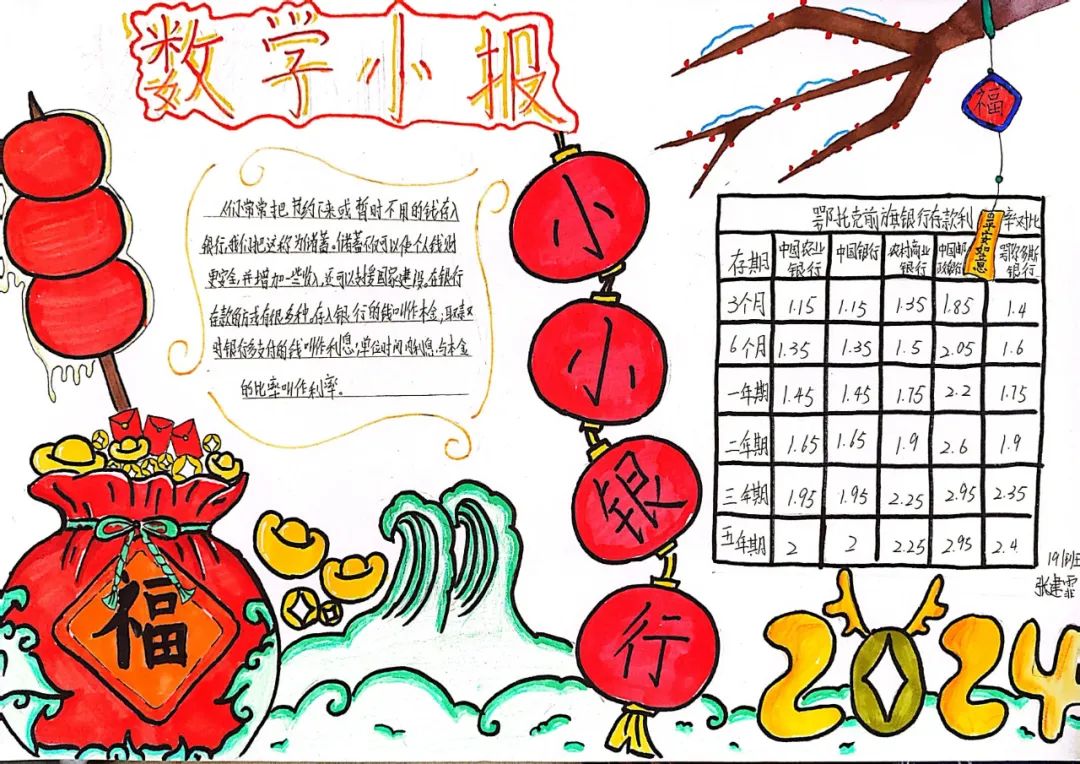 数学小报
人们常常把节约下来或暂时不用的钱存入
银行,我们把这称为储蓄。储蓄不仅可以使个人钱财
更安全,并增加一些收入,还可以支援国家建设。在银行
存款的方式有很多种,存入银行的钱叫作本金;取款
时银行多支付的钱叫作利息;单位时间内利息与本金
的比率叫作利率。
小小银行
福
平安如意
鄂托克前旗银行存款利率对比
存期 中国农业银行 中国银行 农村商业银行 中国邮政储蓄 鄂尔多斯银行
3个月 1.15 1.15 1.35 1.85 1.4
6个月 1.35 1.35 1.5 2.05 1.6
一年期 1.45 1.45 1.75 2.2 1.75
二年期 1.65 1.65 1.9 2.6 1.9
三年期 1.95 1.95 2.25 2.95 2.35
五年期 2 2 2.25 2.95 2.4
191班
张建霏
福
2024